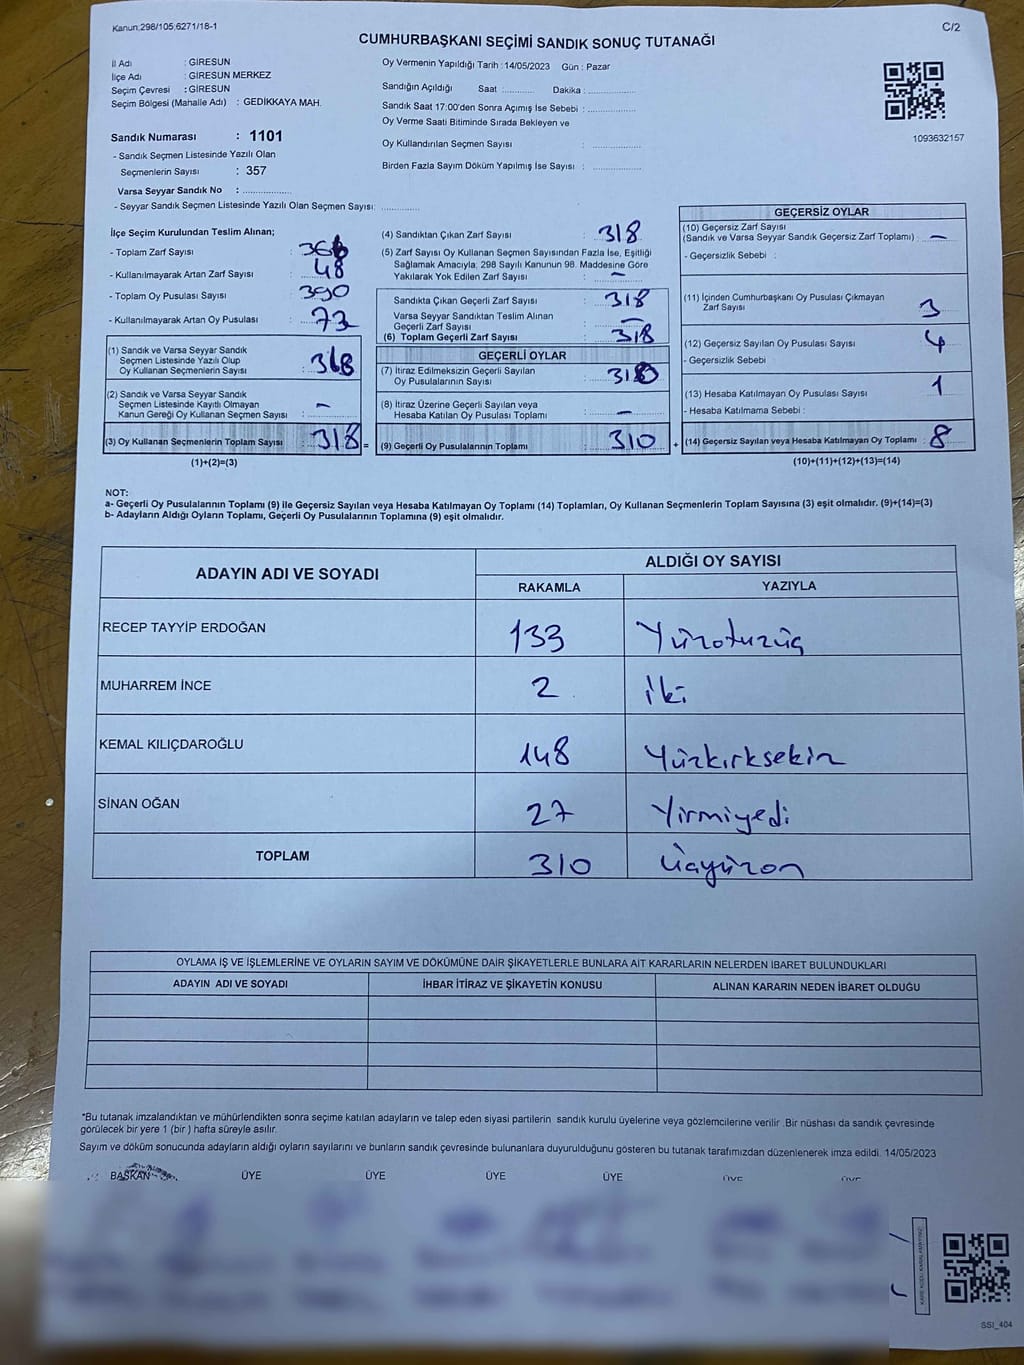 Kanun;298/105;6271/18-1
C/2
CUMHURBAŞKANI SEÇİMİ SANDIK SONUÇ TUTANAĞI
İl Adı : GİRESUN
İlçe Adı : GİRESUN MERKEZ
Seçim Çevresi : GİRESUN
Seçim Bölgesi (Mahalle Adı) : GEDİKKAYA MAH.
Sandık Numarası : 1101
- Sandık Seçmen Listesinde Yazılı Olan
Seçmenlerin Sayısı : 357
Varsa Seyyar Sandık No : ..................
- Seyyar Sandık Seçmen Listesinde Yazılı Olan Seçmen Sayısı: ..............
Oy Vermenin Yapıldığı Tarih : 14/05/2023 Gün : Pazar
Sandığın Açıldığı Saat ............ Dakika : .................
Sandık Saat 17:00'den Sonra Açımış İse Sebebi : .................
Oy Verme Saati Bitiminde Sırada Bekleyen ve
Oy Kullandırılan Seçmen Sayısı : .................
Birden Fazla Sayım Döküm Yapılmış İse Sayısı : .................
1093632157
İlçe Seçim Kurulundan Teslim Alınan;
- Toplam Zarf Sayısı :
- Kullanılmayarak Artan Zarf Sayısı : 48
- Toplam Oy Pusulası Sayısı : 390
- Kullanılmayarak Artan Oy Pusulası : 72
(1) Sandık ve Varsa Seyyar Sandık
Seçmen Listesinde Yazılı Olup
Oy Kullanan Seçmenlerin Sayısı :
(2) Sandık ve Varsa Seyyar Sandık
Seçmen Listesinde Kayıtlı Olmayan
Kanun Gereği Oy Kullanan Seçmen Sayısı : –
(3) Oy Kullanan Seçmenlerin Toplam Sayısı : 318 =
(1)+(2)=(3)
(4) Sandıktan Çıkan Zarf Sayısı : 318
(5) Zarf Sayısı Oy Kullanan Seçmen Sayısından Fazla İse, Eşitliği
Sağlamak Amacıyla; 298 Sayılı Kanunun 98. Maddesine Göre
Yakılarak Yok Edilen Zarf Sayısı : –
Sandıkta Çıkan Geçerli Zarf Sayısı : 318
Varsa Seyyar Sandıktan Teslim Alınan
Geçerli Zarf Sayısı : –
(6) Toplam Geçerli Zarf Sayısı : 318
GEÇERLİ OYLAR
(7) İtiraz Edilmeksizin Geçerli Sayılan
Oy Pusulalarının Sayısı : 310
(8) İtiraz Üzerine Geçerli Sayılan veya
Hesaba Katılan Oy Pusulası Toplamı : –
(9) Geçerli Oy Pusulalarının Toplamı : 310 +
GEÇERSİZ OYLAR
(10) Geçersiz Zarf Sayısı
(Sandık ve Varsa Seyyar Sandık Geçersiz Zarf Toplamı) : –
- Geçersizlik Sebebi :
(11) İçinden Cumhurbaşkanı Oy Pusulası Çıkmayan
Zarf Sayısı 3
(12) Geçersiz Sayılan Oy Pusulası Sayısı : 4
- Geçersizlik Sebebi :
(13) Hesaba Katılmayan Oy Pusulası Sayısı : 1
- Hesaba Katılmama Sebebi :
(14) Geçersiz Sayılan veya Hesaba Katılmayan Oy Toplamı : 8
(10)+(11)+(12)+(13)=(14)
NOT:
a- Geçerli Oy Pusulalarının Toplamı (9) ile Geçersiz Sayılan veya Hesaba Katılmayan Oy Toplamı (14) Toplamları, Oy Kullanan Seçmenlerin Toplam Sayısına (3) eşit olmalıdır. (9)+(14)=(3)
b- Adayların Aldığı Oyların Toplamı, Geçerli Oy Pusulalarının Toplamına (9) eşit olmalıdır.
ADAYIN ADI VE SOYADI ALDIĞI OY SAYISI
RAKAMLA YAZIYLA
RECEP TAYYİP ERDOĞAN 133 Yüzotuzüç
MUHARREM İNCE 2 İki
KEMAL KILIÇDAROĞLU 148 Yüzkırksekiz
SİNAN OĞAN 27 Yirmiyedi
TOPLAM 310 Üçyüzon
OYLAMA İŞ VE İŞLEMLERİNE VE OYLARIN SAYIM VE DÖKÜMÜNE DAİR ŞİKAYETLERLE BUNLARA AİT KARARLARIN NELERDEN İBARET BULUNDUKLARI
ADAYIN ADI VE SOYADI İHBAR İTİRAZ VE ŞİKAYETİN KONUSU ALINAN KARARIN NEDEN İBARET OLDUĞU
*Bu tutanak imzalandıktan ve mühürlendikten sonra seçime katılan adayların ve talep eden siyasi partilerin sandık kurulu üyelerine veya gözlemcilerine verilir .Bir nüshası da sandık çevresinde
görülecek bir yere 1 (bir ) hafta süreyle asılır.
Sayım ve döküm sonucunda adayların aldığı oyların sayılarını ve bunların sandık çevresinde bulunanlara duyurulduğunu gösteren bu tutanak tarafımızdan düzenlenerek imza edildi. 14/05/2023
BAŞKAN ÜYE ÜYE ÜYE ÜYE ÜYE ÜYE
SSI_404